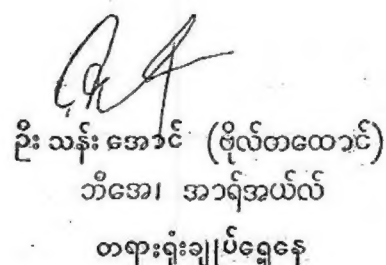 ဦး သန်း အောင် (ဗိုလ်တထောင်)
ဘီအေ၊ အာရ်အယ်လ်
တရားရုံးချုပ်ရှေ့နေ